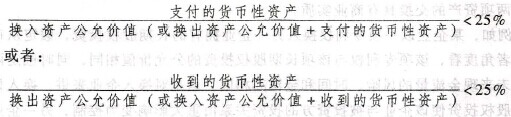 支付的货币性资产
换入资产公允价值（或换出资产公允价值+支付的货币性资产）<25%
或者：
收到的货币性资产
换出资产公允价值（或换入资产公允价值+收到的货币性资产）<25%